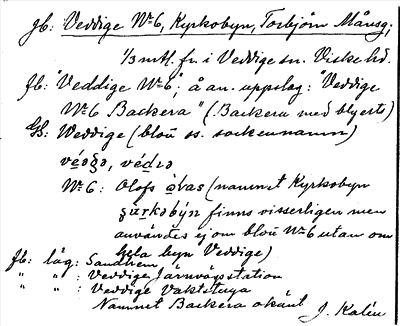 Jb: Veddige No 6, Kyrkobyn, Torbjörn Månsg,
1/3 mtl. fr. i Veddige sn. Viske hd.
Jb: "Veddige No 6"; å an. uppslag: "Veddige
No 6 Backera" (Backera med blyerts)
Us: Veddige (blott ss. sockennamn)
No 6: Olofs åbas (namnet Kyrkobyn
finns visserligen men
användes ej om blott No 6 utan om
hela byn Veddige)
Jb: läg: Sandhem
" " : Veddige Järnvägsstation
" " : Veddige Vaktstuga
Namnet Backera okänt
J. Kalén